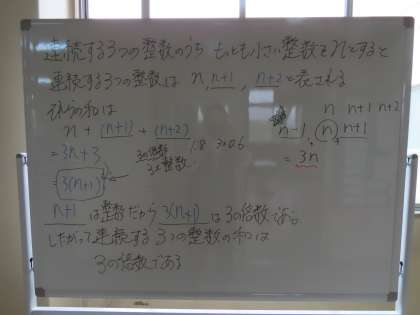 連続する3つの整数のうち もっとも小さい整数をnとすると
連続する3つの整数は n, n+1, n+2と表される
それらの和は
n + (n+1) + (n+2)
= 3n+3
= 3(n+1)
3の倍数
3×整数
1.8 3×0.6
n n+1 n+2
n-1, n, n+1
= 3n
n+1 は整数だから 3(n+1) は3の倍数である。
したがって連続する3つの整数の和は
3の倍数である